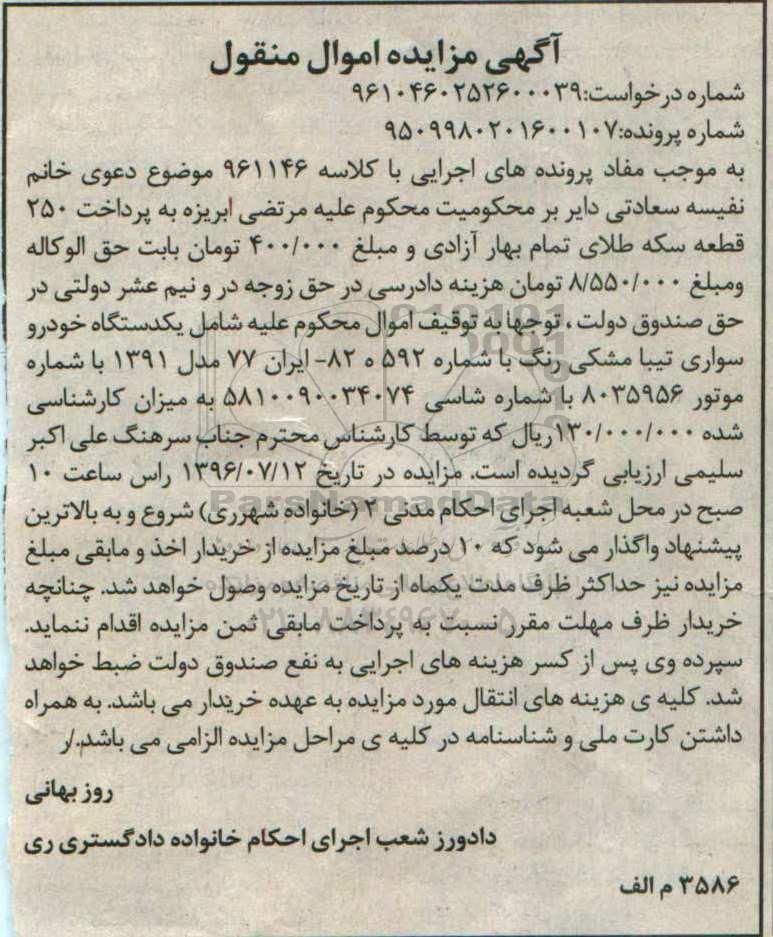 آگهی مزایده اموال منقول
شماره درخواست:۹۶۱۰۴۶۰۲۵۲۶۰۰۰۳۹
شماره پرونده:۹۵۰۹۹۸۰۲۰۱۶۰۰۱۰۷
به موجب مفاد پرونده های اجرایی با کلاسه ۹۶۱۱۴۶ موضوع دعوی خانم
نفیسه سعادتی دایر بر محکومیت محکوم علیه مرتضی ابریزه به پرداخت ۲۵۰
قطعه سکه طلای تمام بهار آزادی و مبلغ ۴۰۰/۰۰۰ تومان بابت حق الوکاله
ومبلغ ۸/۵۵۰/۰۰۰ تومان هزینه دادرسی در حق زوجه در و نیم عشر دولتی در
حق صندوق دولت ، توجها به توقیف اموال محکوم علیه شامل یکدستگاه خودرو
سواری تیبا مشکی رنگ با شماره ۵۹۲ ه ۸۲- ایران ۷۷ مدل ۱۳۹۱ با شماره
موتور ۸۰۳۵۹۵۶ با شماره شاسی ۵۸۱۰۰۹۰۰۳۴۰۷۴ به میزان کارشناسی
شده ۱۳۰/۰۰۰/۰۰۰ریال که توسط کارشناس محترم جناب سرهنگ علی اکبر
سلیمی ارزیابی گردیده است. مزایده در تاریخ ۱۳۹۶/۰۷/۱۲ راس ساعت ۱۰
صبح در محل شعبه اجرای احکام مدنی ۲ (خانواده شهرری) شروع و به بالاترین
پیشنهاد واگذار می شود که ۱۰ درصد مبلغ مزایده از خریدار اخذ و مابقی مبلغ
مزایده نیز حداکثر ظرف مدت یکماه از تاریخ مزایده وصول خواهد شد. چنانچه
خریدار ظرف مهلت مقرر نسبت به پرداخت مابقی ثمن مزایده اقدام ننماید.
سپرده وی پس از کسر هزینه های اجرایی به نفع صندوق دولت ضبط خواهد
شد. کلیه ی هزینه های انتقال مورد مزایده به عهده خریدار می باشد. به همراه
داشتن کارت ملی و شناسنامه در کلیه ی مراحل مزایده الزامی می باشد./ر
روز بهانی
دادورز شعب اجرای احکام خانواده دادگستری ری
۳۵۸۶ م الف
ParsNamadData